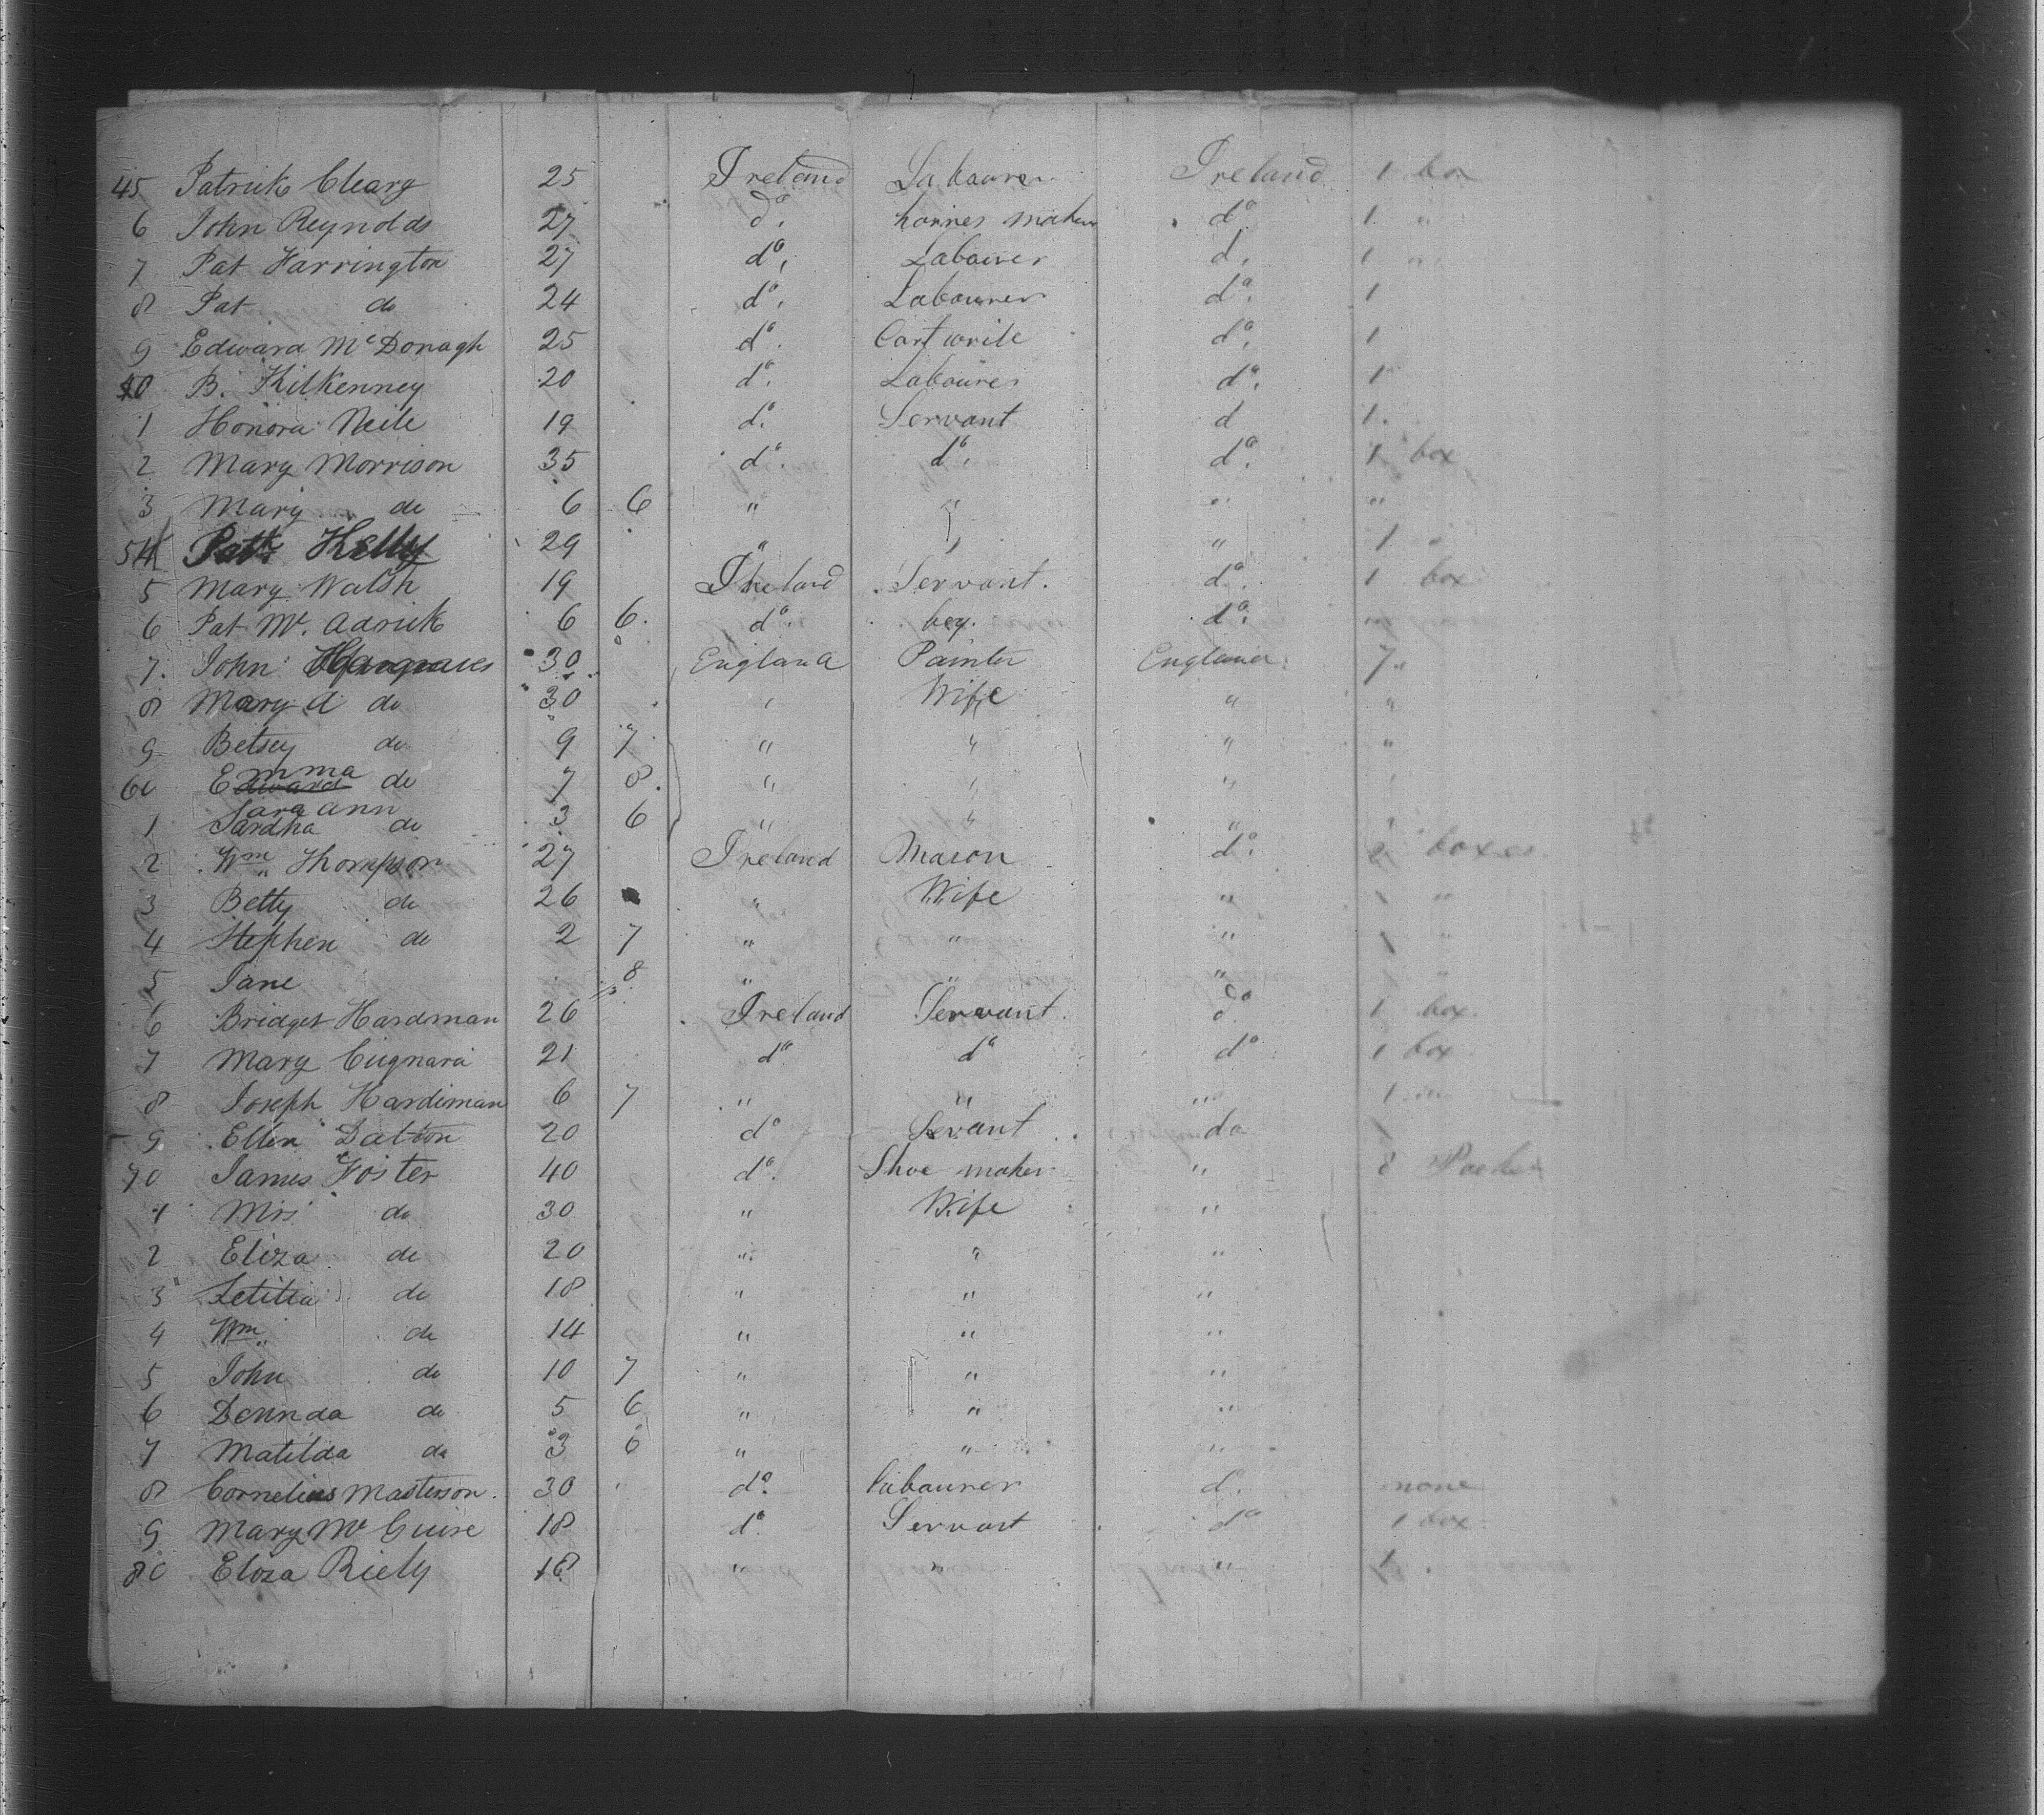 45 Patrick Cleary 25 Ireland Labourer Ireland 1 box
6 John Reynolds 27 do. harnes maker do. 1 "
7 Pat Harrington 27 do. Labourer d. 1 "
8 Pat do 24 do. Labourer do. 1
9 Edward McDonagh 25 do. Cartwrile do. 1
50 B. Kilkenney 20 do. Labourer do. 1
1 Honora Neile 19 do. Servant d 1
2 Mary Morrison 35 do. do. do. 1 box
3 Mary do 6 6 " " " "
54 Patk Kelly 29 " " " 1 "
5 Mary Walsh 19 Ireland Servant. do. 1 box
6 Pat Mc. Adrick 6 6. do. boy. do. "
7. John 30 England Painter England 7 "
8 Mary A do 30 " Wife " "
9 Betsey do 9 7 " " " "
60 Emma do 7 8 " " "
1 Sara Ann do 3 6 " " "
2 Wm Thompson 27 Ireland Mason do. 2 boxes
3 Betty do 26 " Wife " 1 "
4 Stephen do 2 7 " " " 1 "
5 Jane 8 " " " 1 "
6 Bridget Hardman 26 Ireland Servant. do 1 box.
7 Mary Cugnara 21 do do do 1 box
8 Joseph Hardiman 6 7 " " " 1 "
9 Ellen Dalton 20 do Sevant do 1
70 James Foster 40 do. Shoe maker " 8
1 Mrs do 30 " Wife "
2 Eliza do 20 " " "
3 Letitia do 18 " " "
4 Wm do 14 " " "
5 John do 10 7 " " "
6 Dennda do 5 6 " " "
7 Matilda do 3 6 " " "
8 Cornelius Masterson 30 do. labourer d. none
9 Mary Mc Guire 18 do. Servant do 1 box
80 Eloza Riely 18 " " " 1